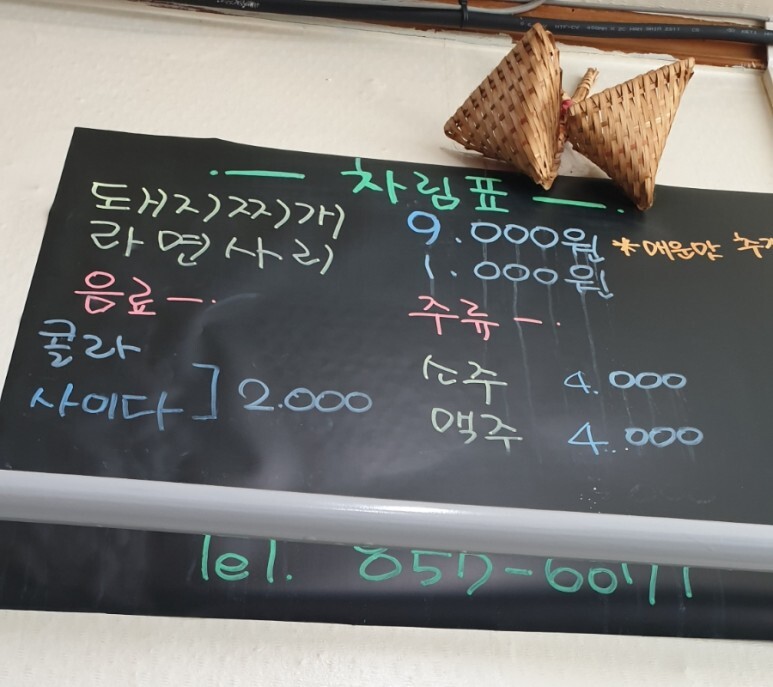 차림표
돼지찌개 9.000원 *매운맛
라면사리 1.000원
음료
콜라
사이다 ] 2.000
주류
소주 4.000
맥주 4.000
Tel.